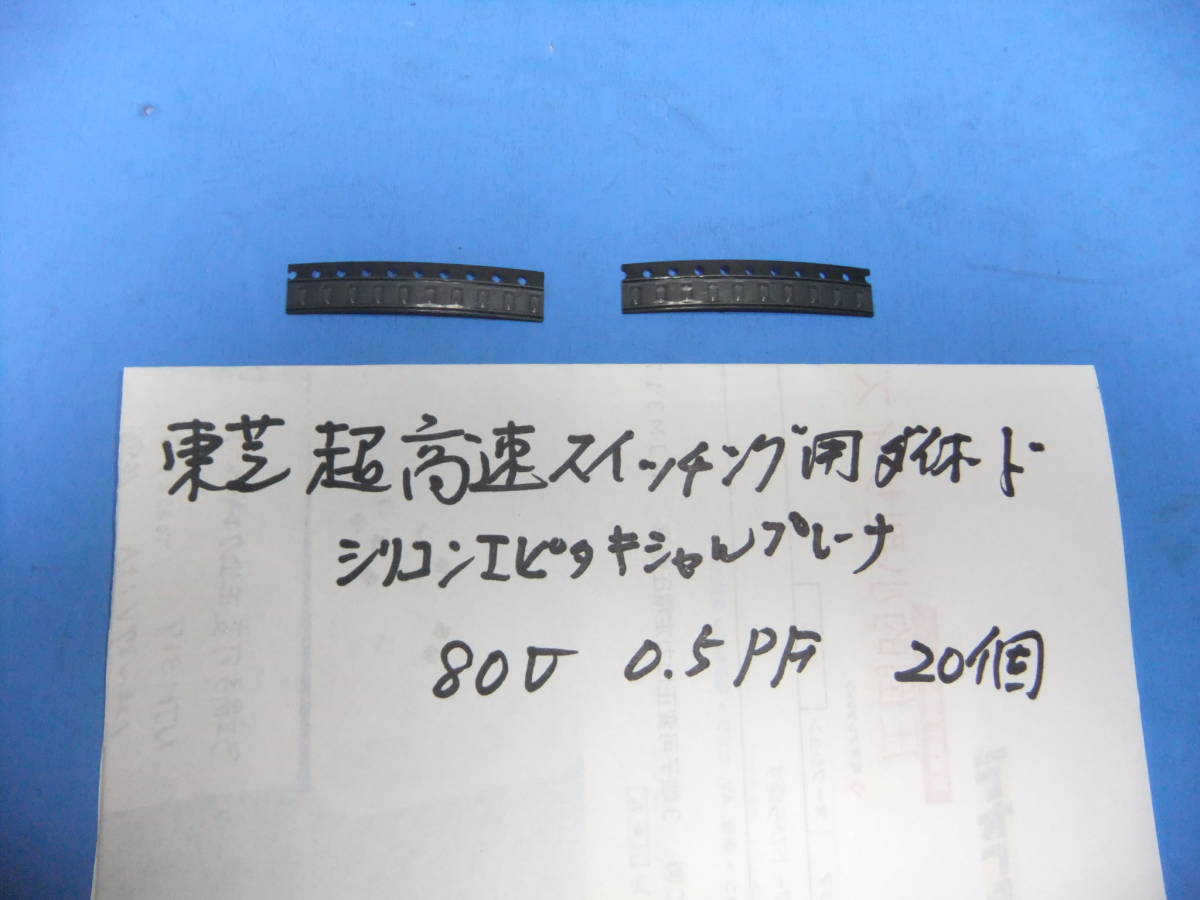 東芝 超高速スイッチング用ダイオード
シリコンエピタキシャルプレーナ
80V 0.5PF 20個